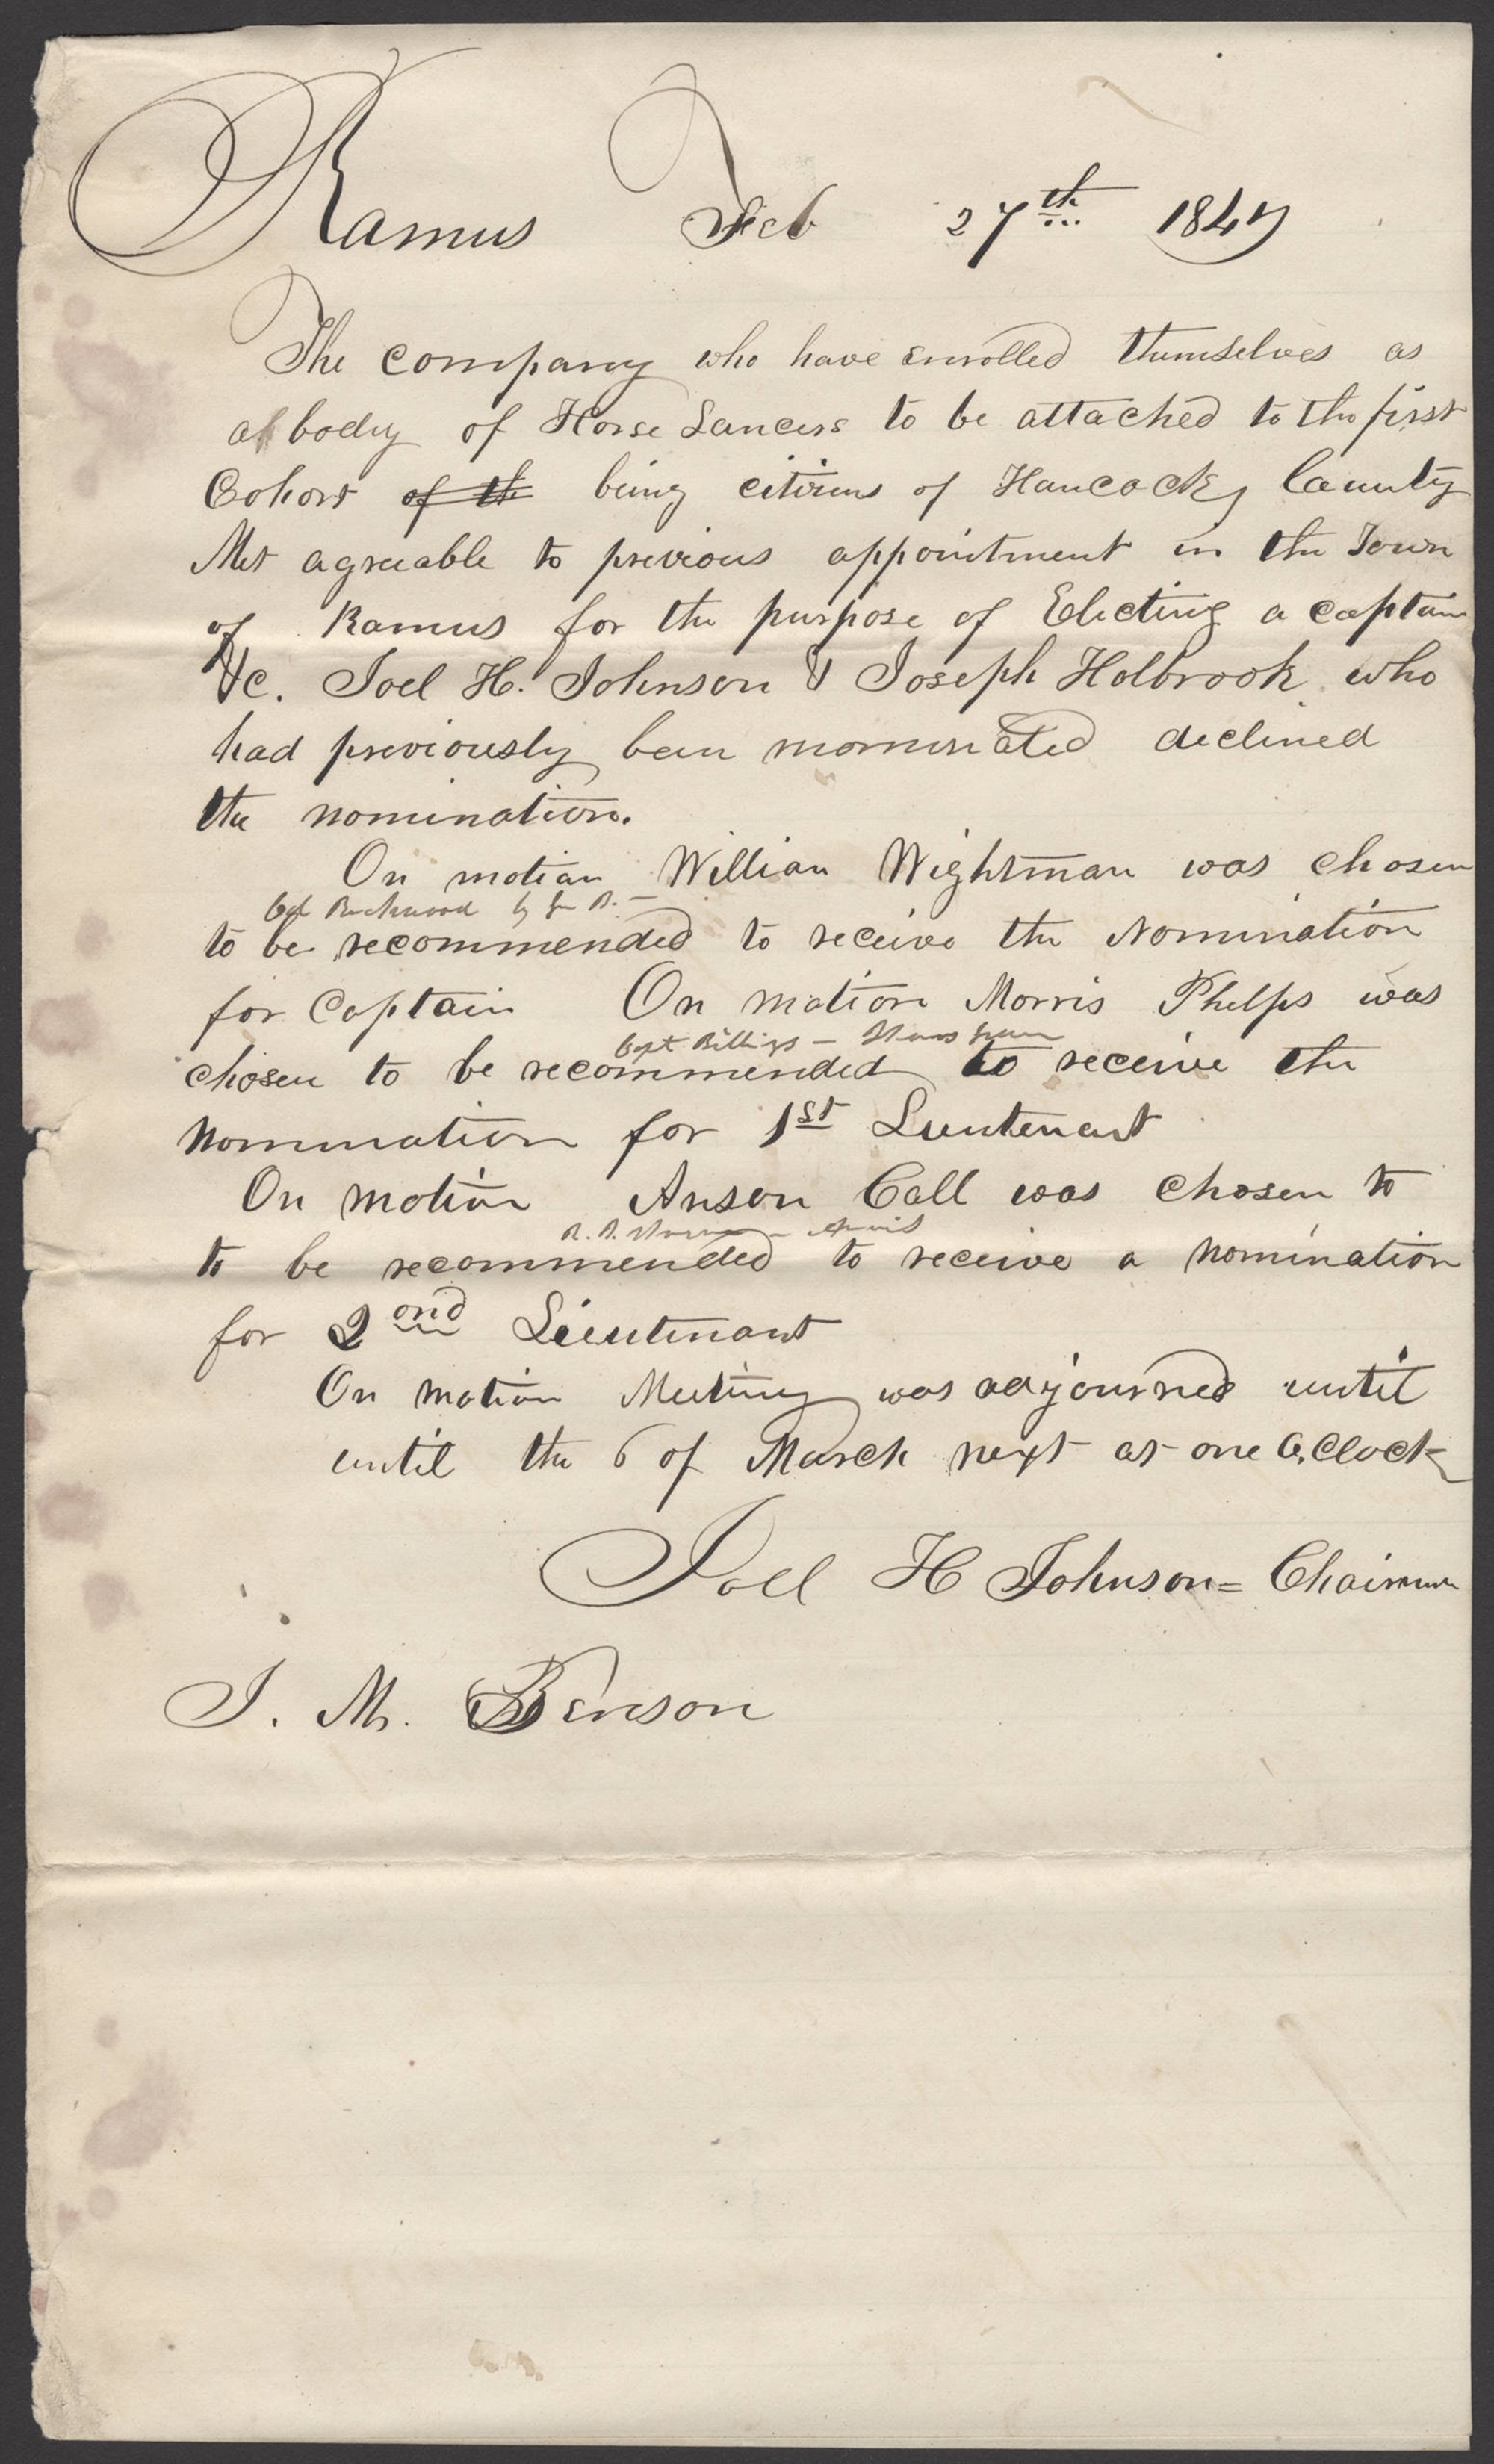 Ramus Feb 27th 1847
The company who have enrolled themselves as
a body of Horse Lancers to be attached to the first
Cohort of th being citizens of Hancock County
Met agreeable to previous appointment in the Town
of Ramus for the purpose of Electing a captain
&c. Joel H. Johnson & Joseph Holbrook who
had previously been nominated declined
the nomination.
On motion William Wightman was chosen
by
to be recommended to receive the Nomination
for Captain On motion Morris Phelps was
Capt Billings —
chosen to be recommended to receive the
Nommination for 1st Lieutenant
On motion Anson Call was chosen to
to be recommended to receive a nomination
for 2ond Lieutenant
On motion Meeting was adjourned until
until the 6 of March next at one O,Clock
Joel H Johnson= Chairman
J. M. Benson